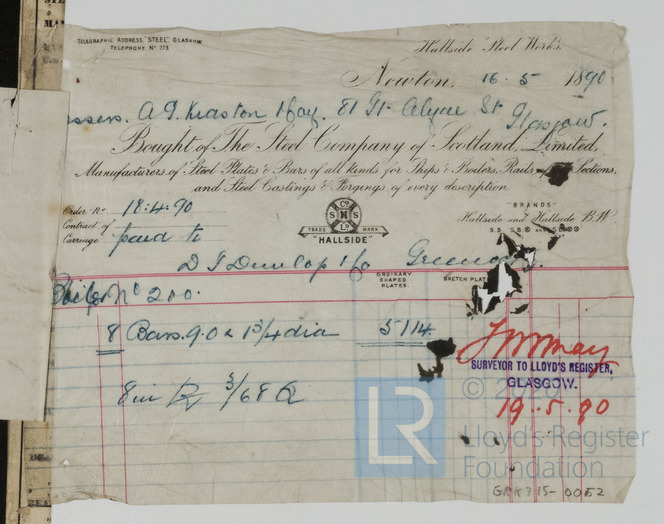 TELEGRAPHIC ADDRESS, "STEEL", GLASGOW
TELEPHONE Nº 773
Hallside Steel Works.
Newton, 16.5 1890
81 Gt. Clyde St Glasgow.
Bought of The Steel Company of Scotland, Limited,
Manufacturers of Steel Plates & Bars of all kinds for Ships & Boilers, Rails Sections,
and Steel Castings & Forgings of every description.
Order No 18.4.90
Contract of
Carriage paid to
Cº
S M S
Lᴅ
TRADE MARK
"HALLSIDE"
BRANDS
Hallside and Hallside B.W
D J Dunlop & Co Greenock.
ORDINARY SHAPED PLATES.
SKETCH PLATES
Boiler Nº 200.
8 Bars 9.0 x 1 3/4 dia 5114
SURVEYOR TO LLOYD'S REGISTER,
GLASGOW.
19.5.90
© 2020
LR
Lloyd's Register
Foundation
GRK315-0052